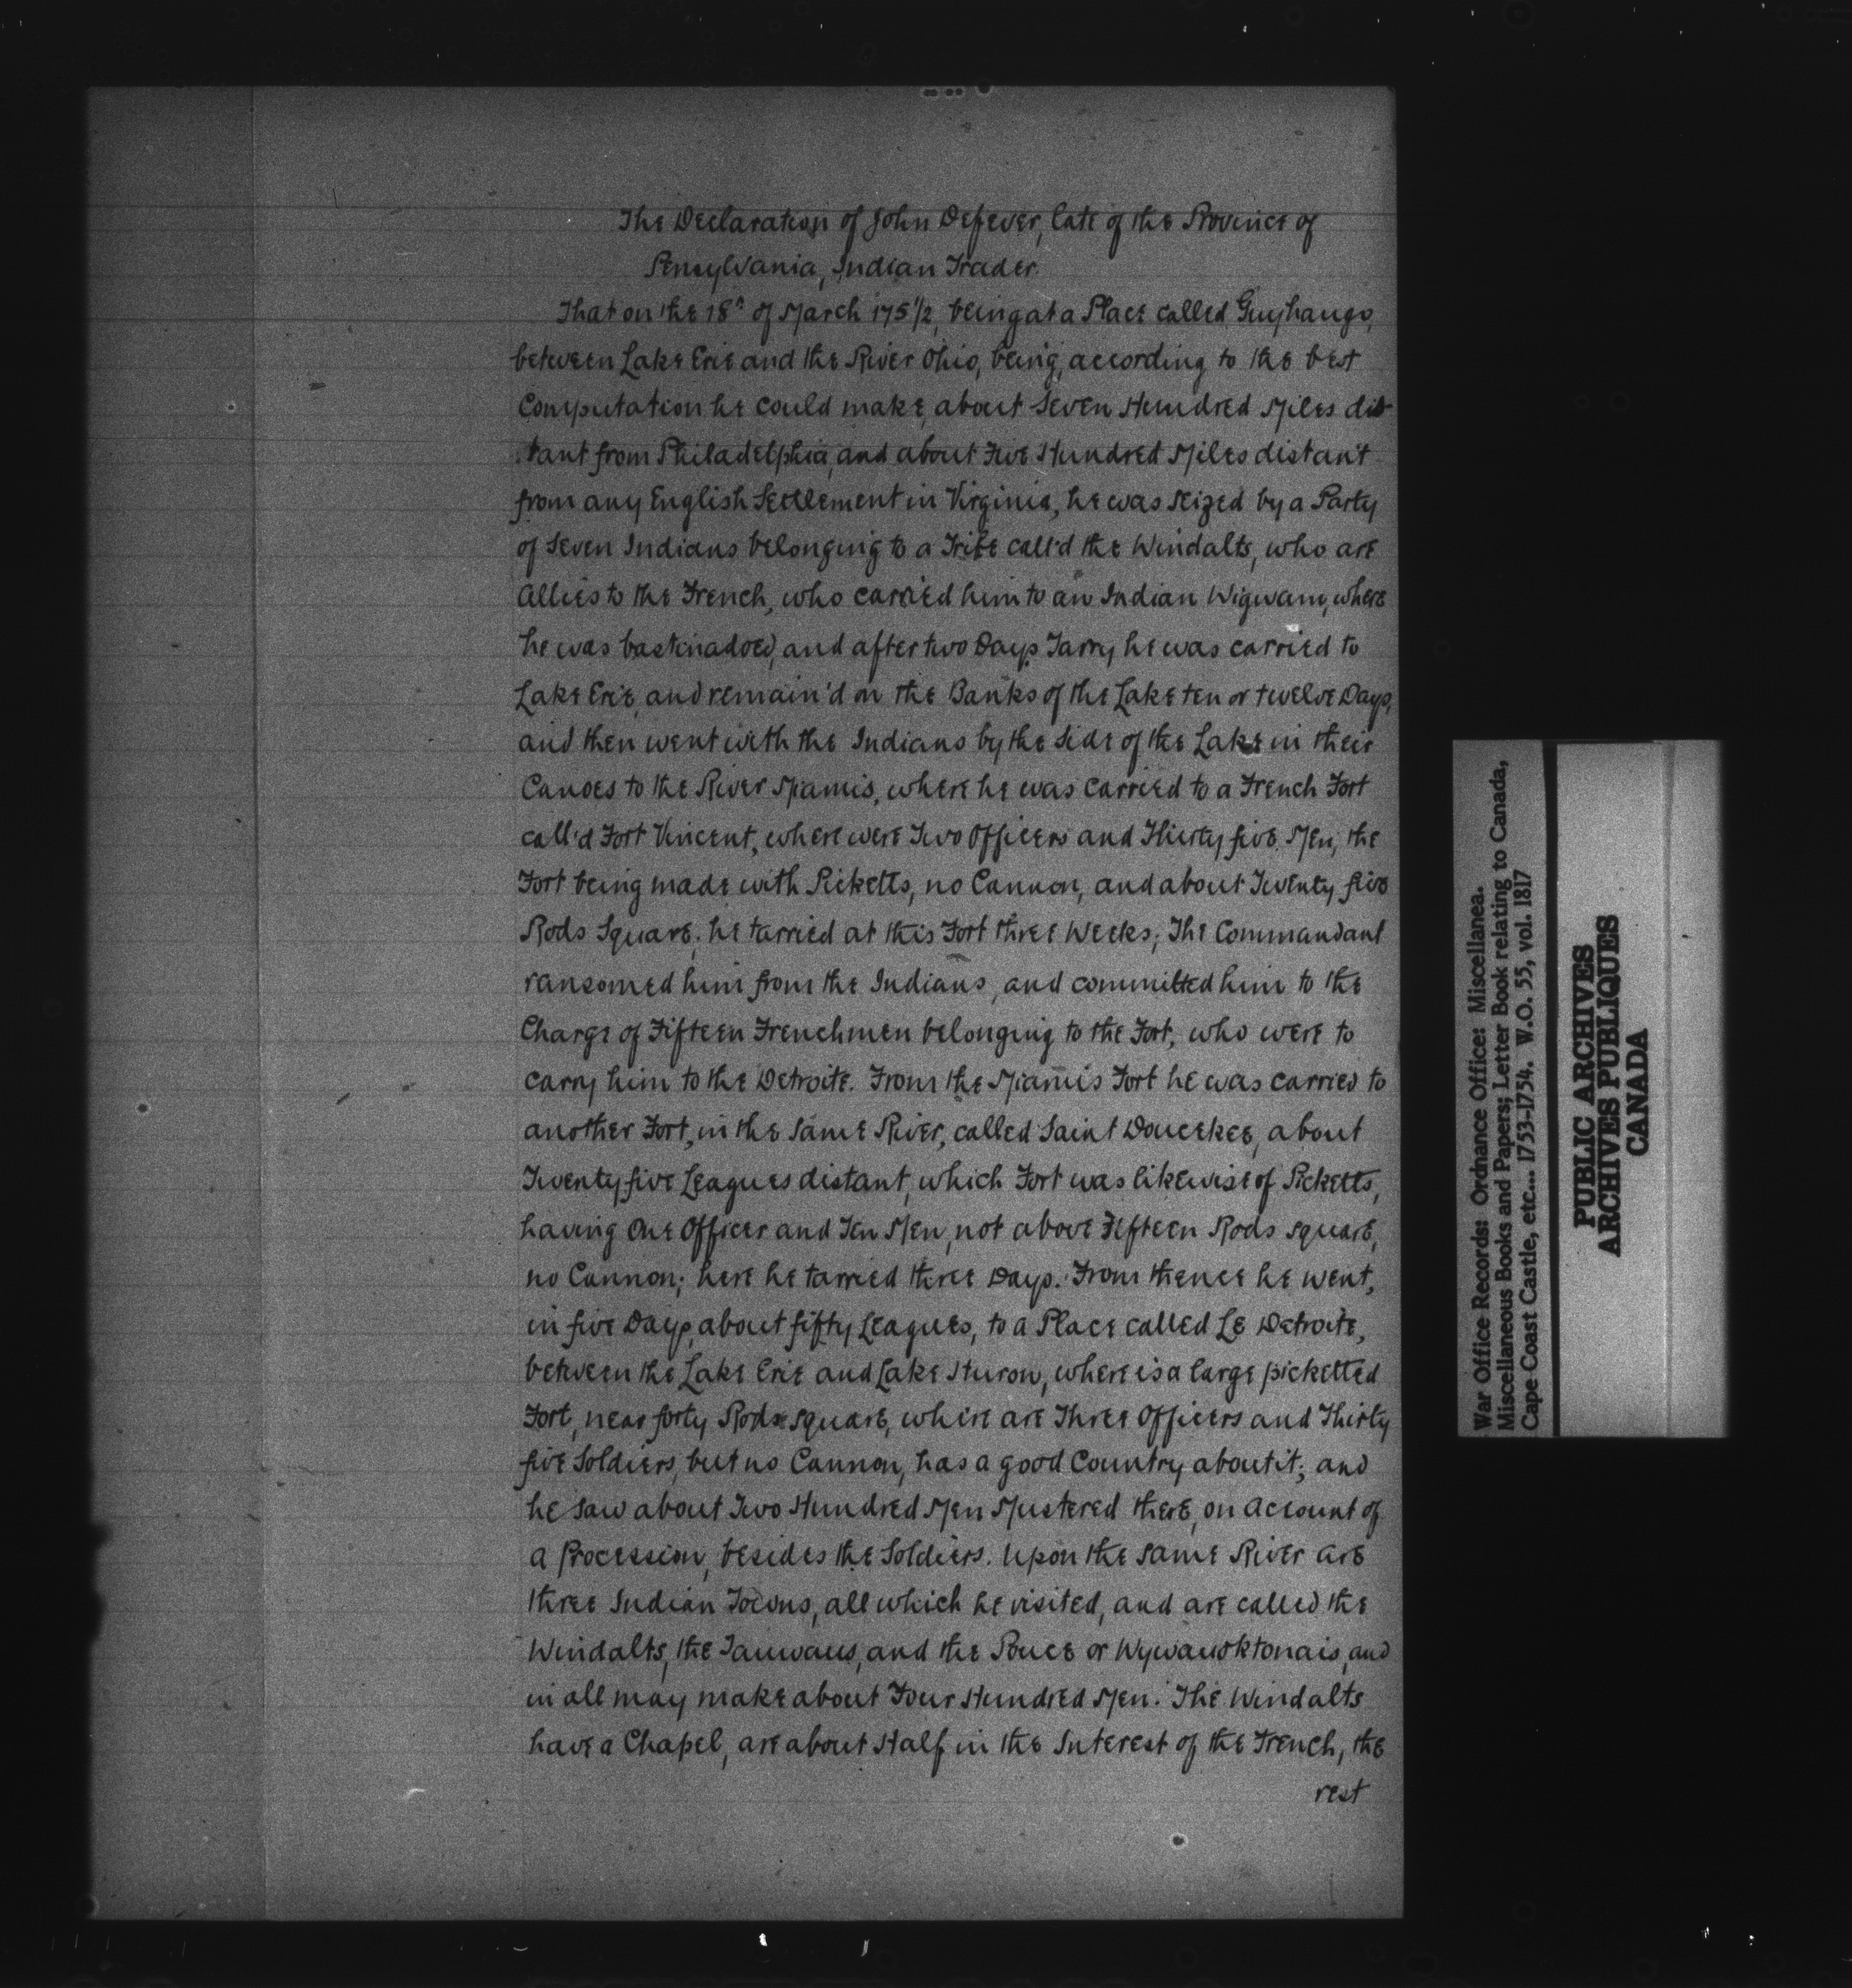 The Declaration of John Defever, late of the Province of
Pensylvania, Indian Trader.
That on the 18th of March 175 1/2, being at a Place called Guyhaugo,
between Lake Erie and the River Ohio, being, according to the best
Computation he could make, about Seven Hundred Miles dis
tant from Philadelphia, and about Five Hundred Miles distant
from any English Settlement in Virginia, he was seized by a Party
of Seven Indians belonging to a Tribe call'd the Windalts, who are
Allies to the French, who carried him to an Indian Wigwam, where
he was bastinadoed, and after two Days Tarry he was carried to
Lake Erie, and remain'd on the Banks of the Lake ten or twelve Days,
and then went with the Indians by the Side of the Lake in their
Canoes to the River Miamis, where he was carried to a French Fort
call'd Fort Vincent, where were Two Officers and Thirty five Men, the
Fort being made with Picketts, no Cannon, and about Twenty five
Rods Square; he tarried at this Fort three Weeks; The Commandant
ransomed him from the Indians, and committed him to the
Charge of Fifteen Frenchmen belonging to the Fort, who were to
carry him to the Detroite. From the Miamis Fort he was carried to
another Fort, in the same River, called Saint Douekee, about
Twenty five Leagues distant, which Fort was likewise of Picketts,
having One Officer and Ten Men, not above Fifteen Rods square,
no Cannon; here he tarried three Days. From thence he went,
in five Days, about fifty Leagues, to a Place called Le Detroite,
between the Lake Erie and Lake Huron, where is a large picketted
Fort, near forty Rods square, where are Three Officers and Thirty
five Soldiers, but no Cannon, has a good Country about it; and
he saw about Two Hundred Men Mustered there, on Account of
a Procession, besides the Soldiers. Upon the same River are
three Indian Towns, all which he visited, and are called the
Windalts, the Tauwaus, and the Pouce or Wywauoktonais, and
in all may make about Four Hundred Men. The Windalts
have a Chapel, are about Half in the Interest of the French, the
rest
War Office Records: Ordnance Office: Miscellanea.
Miscellaneous Books and Papers; Letter Book relating to Canada,
Cape Coast Castle, etc... 1753-1754. W.O. 55, vol. 1817
PUBLIC ARCHIVES
ARCHIVES PUBLIQUES
CANADA